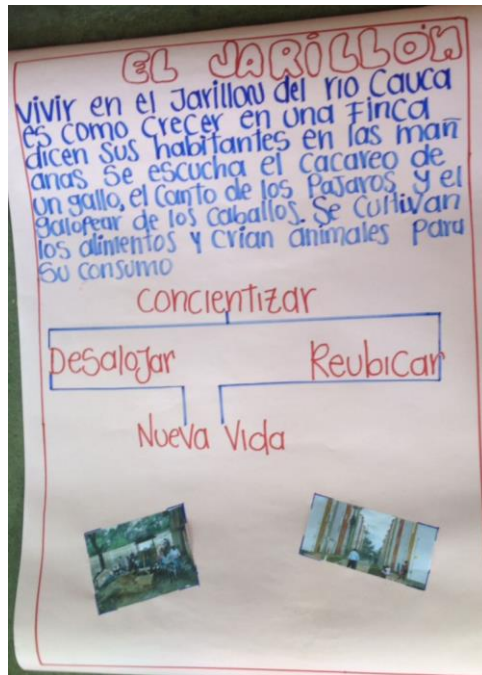 EL JARILLON
Vivir en el Jarillon del rio Cauca
es como crecer en una Finca
dicen sus habitantes en las mañ
anas se escucha el cacareo de
un gallo, el canto de los Pajaros y el
galopear de los caballos. Se cultivan
los alinientos y crian animales para
su consumo
concientizar
Desalojar Reubicar
Nueva Vida